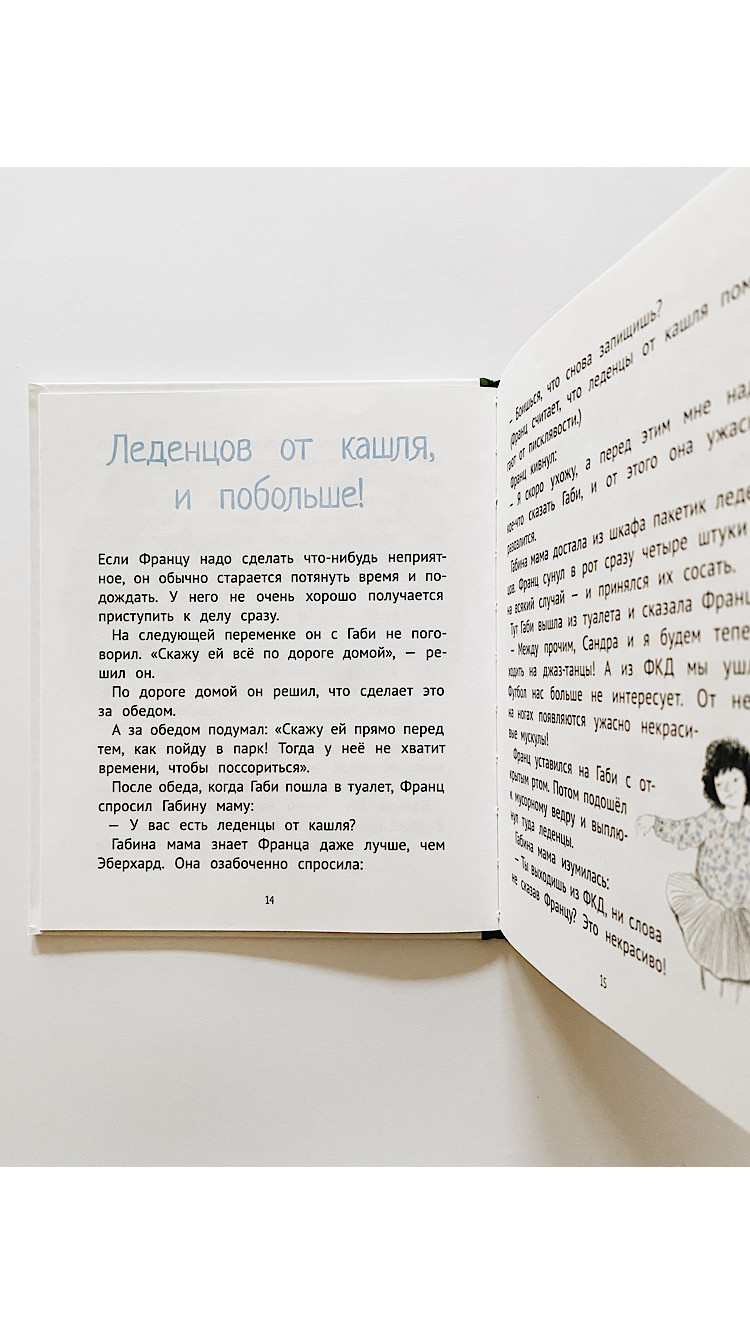 Леденцов от кашля,
и побольше!
Если Францу надо сделать что-нибудь неприят-
ное, он обычно старается потянуть время и по-
дождать. У него не очень хорошо получается
приступить к делу сразу.
На следующей переменке он с Габи не пого-
ворил. «Скажу ей всё по дороге домой», — ре-
шил он.
По дороге домой он решил, что сделает это
за обедом.
А за обедом подумал: «Скажу ей прямо перед
тем, как пойду в парк! Тогда у неё не хватит
времени, чтобы поссориться».
После обеда, когда Габи пошла в туалет, Франц
спросил Габину маму:
— У вас есть леденцы от кашля?
Габина мама знает Франца даже лучше, чем
Эберхард. Она озабоченно спросила:
14
– Боишься, что снова запищишь?
(Франц считает, что леденцы от кашля
от писклявости.)
Франц кивнул:
– Я скоро ухожу, а перед этим мне
кое-что сказать Габи, и от этого она
разозлится.
Габина мама достала из шкафа пакетик
Франц сунул в рот сразу четыре штуки
на всякий случай – и принялся их сосать.
Тут Габи вышла из туалета и сказала
– Между прочим, Сандра и я будем
ходить на джаз-танцы! А из ФКД мы
Футбол нас больше не интересует. От
на ногах появляются ужасно некраси-
вые мускулы!
Франц уставился на Габи с от-
крытым ртом. Потом подошёл
к мусорному ведру и выплю-
нул туда леденцы.
Габина мама изумилась:
– Ты выходишь из ФКД, ни слова
не сказав Францу? Это некрасиво!
15